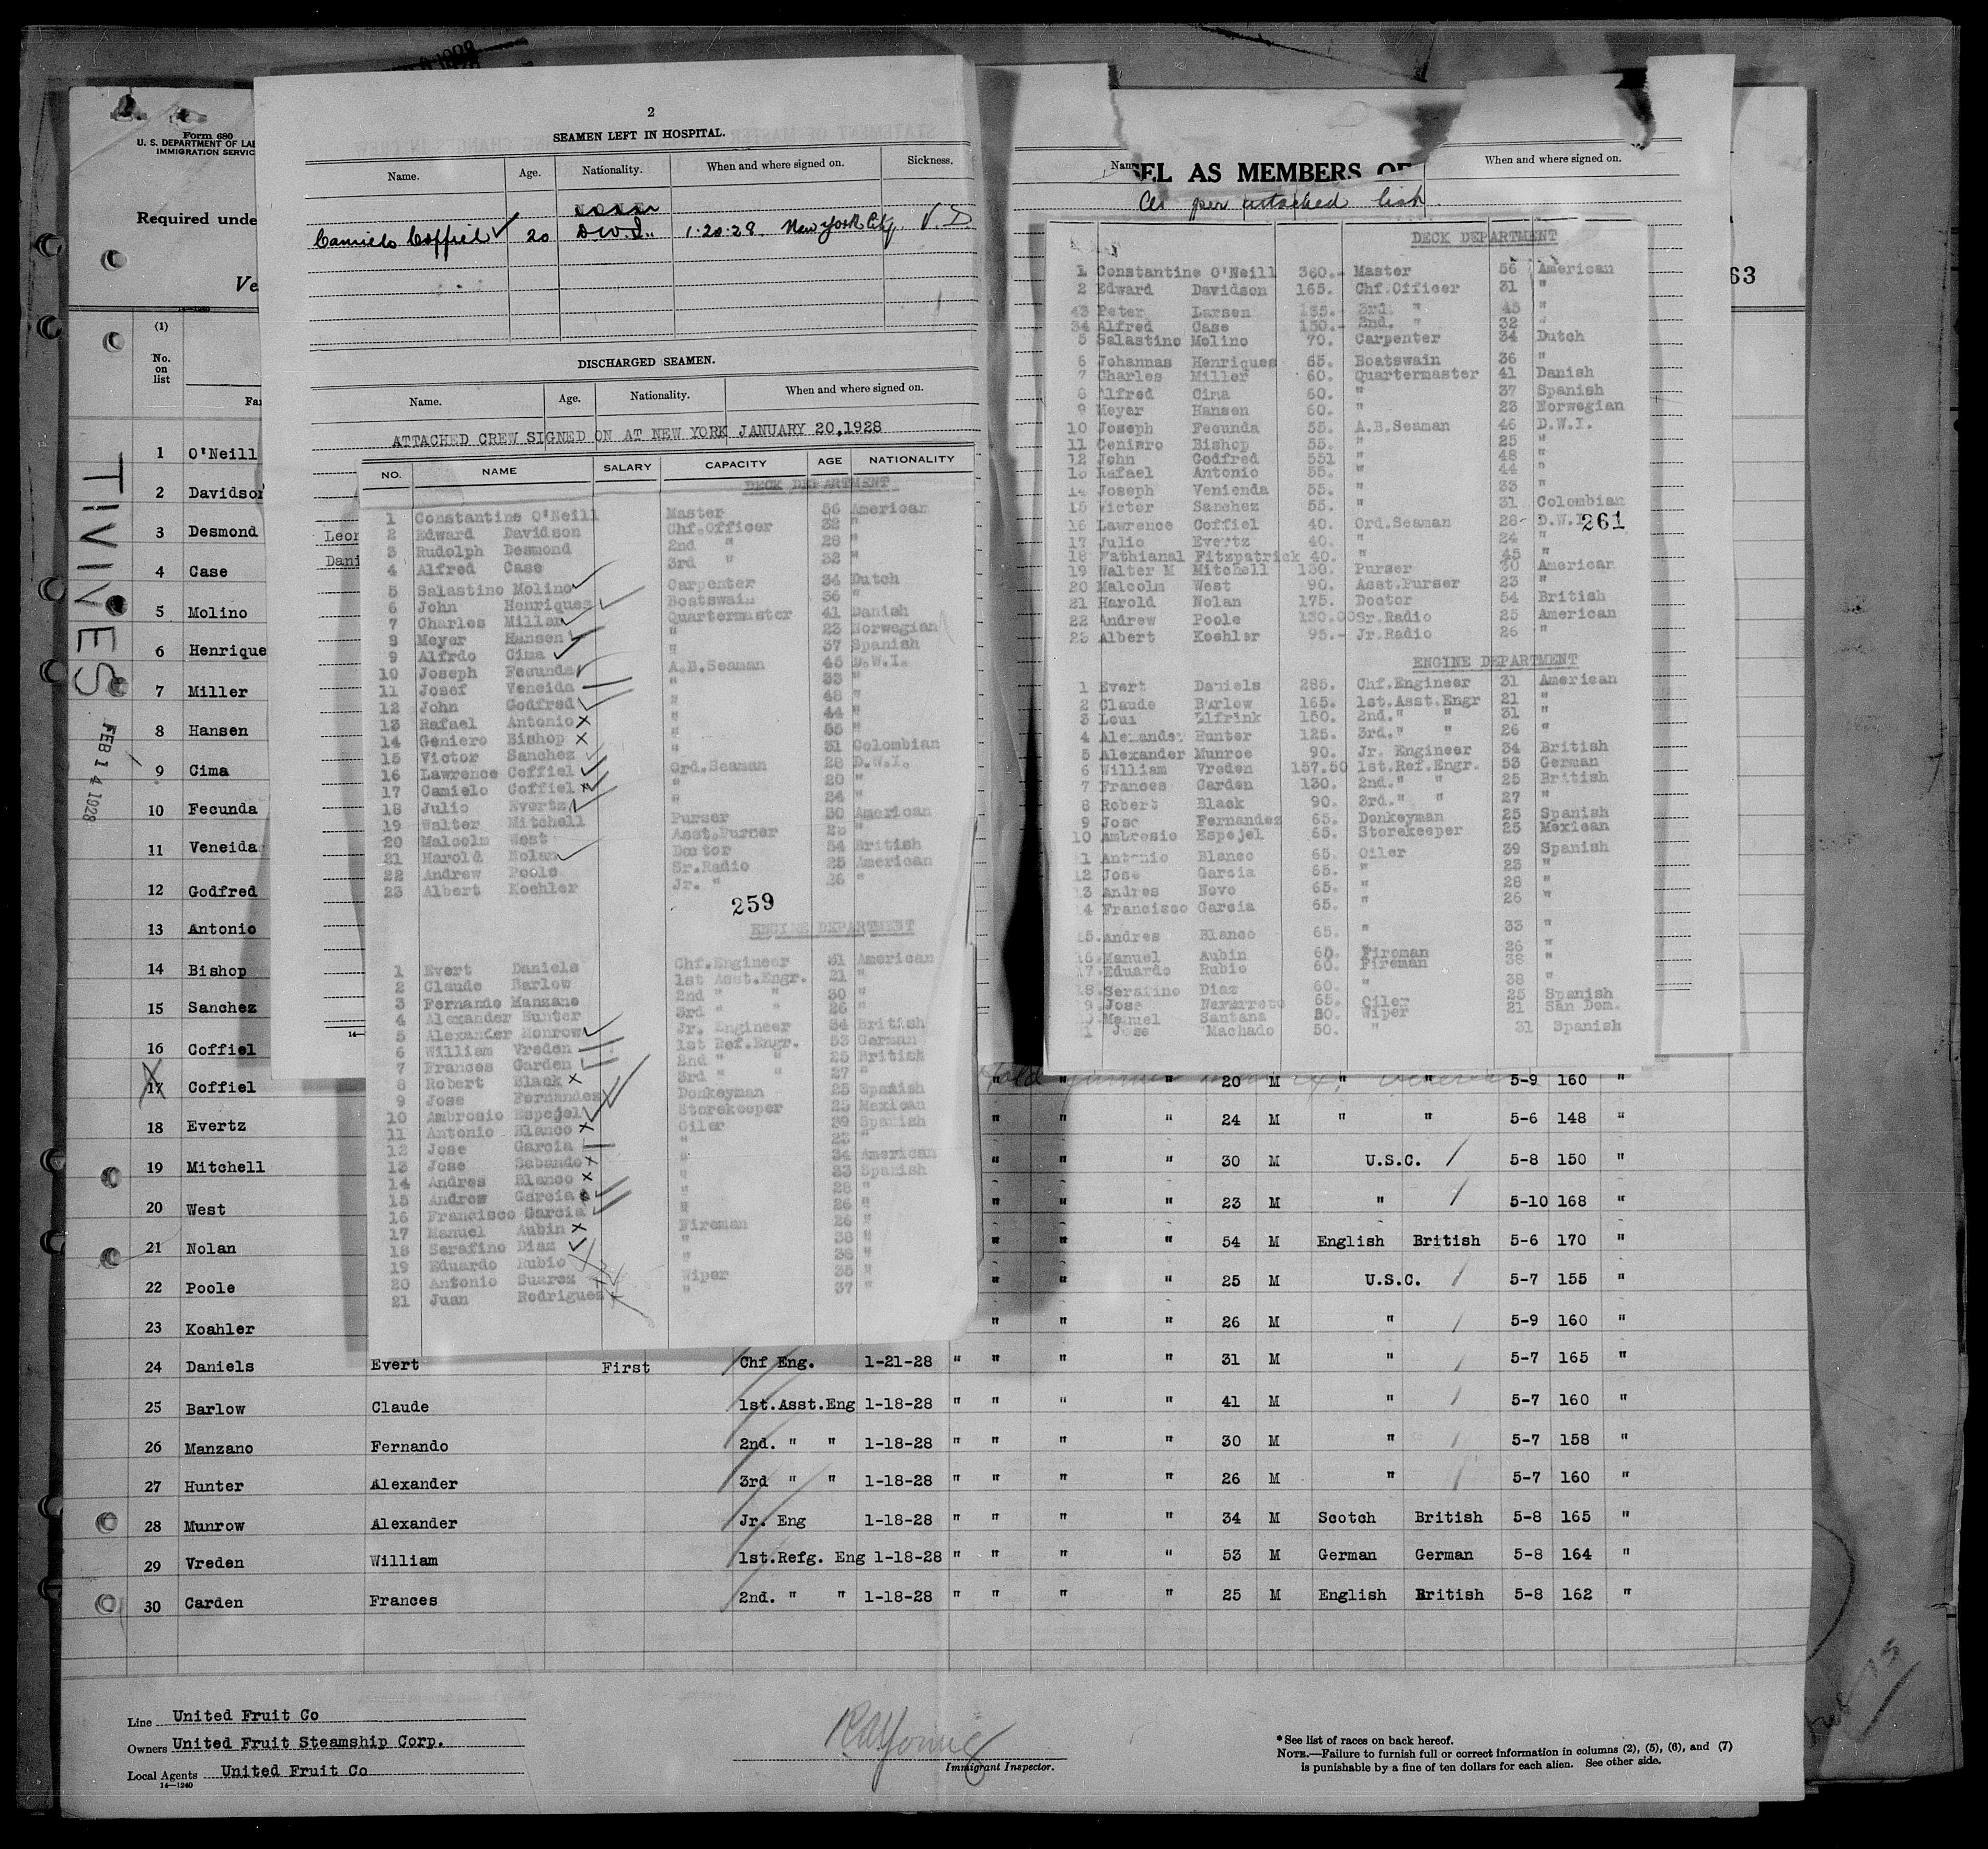 Form 680
U. S. DEPARTMENT OF LA
IMMIGRATION SERVIC
Required unde
Ve
14-1240
(1)
No. on list
Fa
TIVIVES
FEB 14 1928
1 O'Neill
2 Davidson
3 Desmond
4 Case
5 Molino
6 Henrique
7 Miller
8 Hansen
9 Cima
10 Fecunda
11 Veneida
12 Godfred
13 Antonio
14 Bishop
15 Sanchez
16 Coffiel
17 Coffiel
18 Evertz
19 Mitchell
20 West
21 Nolan
22 Poole
23 Koahler
2
SEAMEN LEFT IN HOSPITAL.
Name. Age. Nationality. When and where signed on. Sickness.
NONE
Camielo Coffiel 20 D.W.I. 1-20-28. New York City. V.D
DISCHARGED SEAMEN.
Name. Age. Nationality. When and where signed on.
ATTACHED CREW SIGNED ON AT NEW YORK JANUARY 20,1928
Leon
Dani
NO. NAME SALARY CAPACITY AGE NATIONALITY
DECK DEPARTMENT
1 Constantine O'Neill Master 56 American
2 Edward Davidson Chf.Officer 32 "
3 Rudolph Desmond 2nd " 28 "
4 Alfred Case 3rd " 32 "
5 Salastino Molino Carpenter 34 Dutch
6 John Henriquez Boatswain 36 "
7 Charles Miller Quartermaster 41 Danish
8 Meyer Hansen " 23 Norwegian
9 Alfrdo Cima " 37 Spanish
10 Joseph Fecunda A.B.Seaman 45 D.W.I.
11 Josef Veneida " 33 "
12 John Godfred " 48 "
13 Rafael Antonio " 44 "
14 Geniero Bishop " 55 "
15 Victor Sanchez " 31 Colombian
16 Lawrence Coffiel Ord.Seaman 28 D.W.I.
17 Camielo Coffiel " 20 "
18 Julio Evertz " 24 "
19 Walter Mitchell Purser 30 American
20 Malcolm West Asst.Purser 23 "
21 Harold Nolan Doctor 54 British
22 Andrew Poole Sr.Radio 25 American
23 Albert Koehler Jr. " 26 "
259
ENGINE DEPARTMENT
1 Evert Daniels Chf.Engineer 31 American
2 Claude Barlow 1st Asst.Engr. 21 "
3 Fernando Manzano 2nd " " 30 "
4 Alexander Hunter 3rd " " 26 "
5 Alexander Monrow Jr. Engineer 34 British
6 William Vreden 1st Ref.Engr. 53 German
7 Frances Garden 2nd " " 25 British
8 Robert Black 3rd " " 27 "
9 Jose Fernandez Donkeyman 25 Spanish
10 Ambrosio Espejel Storekeeper 25 Mexican
11 Antonio Blanco Oiler 39 Spanish
12 Jose Garcia " 23 "
13 Jose Sabando " 34 American
14 Andres Blanco " 33 Spanish
15 Andres Garcia " 28 "
16 Francisco Garcia " 26 "
17 Manuel Aubin Fireman 26 "
18 Serafino Diaz " 38 "
19 Eduardo Rubio " 38 "
20 Antonio Suarez Wiper 35 "
21 Juan Rodriguez " 37 "
Nam
SEL AS MEMBERS OF
When and where signed on.
As per attached list
63
DECK DEPARTMENT
1 Constantine O'Neill 360.- Master 56 American
2 Edward Davidson 165. Chf.Officer 31 "
43 Peter Larsen 185. 3rd. " 45 "
34 Alfred Case 150.- 2nd. " 32 "
5 Salastino Molino 70. Carpenter 34 Dutch
6 Johannas Henriques 65. Boatswain 36 "
7 Charles Miller 60. Quartermaster 41 Danish
8 Alfred Cima 60. " 37 Spanish
9 Meyer Hansen 60. " 23 Norwegian
10 Joseph Fecunda 55. A.B.Seaman 46 D.W.I.
11 Ceniwro Bishop 55. " 25 "
12 John Godfred 551 " 48 "
13 Rafael Antonio 55. " 44 "
14 Joseph Venienda 55. " 33 "
15 Victor Sanchez 55. " 31 Colombian
16 Lawrence Coffiel 40. Ord.Seaman 28 D.W.I.
261
17 Julio Evertz 40. " 24 "
18 Nathianal Fitzpatrick 40. " 45 "
19 Walter M Mitchell 130. Purser 30 American
20 Malcolm West 90. Asst.Purser 23 "
21 Harold Nolan 175. Doctor 54 British
22 Andrew Poole 130.00 Sr.Radio 25 American
23 Albert Koehler 95.- Jr.Radio 26 "
ENGINE DEPARTMENT
1 Evert Daniels 285. Chf.Engineer 31 American
2 Claude Barlow 165. 1st.Asst.Engr 21 "
3 Loui Elfrink 150. 2nd." " 31 "
4 Alexander Hunter 125. 3rd." " 26 "
5 Alexander Munroe 90. Jr. Engineer 34 British
6 William Vreden 157.50 1st.Ref.Engr. 53 German
7 Frances Carden 130. 2nd." " 25 British
8 Robert Black 90. 3rd." " 27 "
9 Jose Fernandez 65. Donkeyman 25 Spanish
10 Ambrosio Espejel 65. Storekeeper 25 Mexican
11 Antonio Blanco 65. Oiler 39 Spanish
12 Jose Garcia 65. " 23 "
13 Andres Novo 65. " 28 "
14 Francisco Garcia 65. " 26 "
15. Andres Blanco 65. " 33 "
16. Manuel Aubin 60. Fireman 26 "
17. Eduardo Rubio 60. Fireman 38 "
18. Serafino Diaz 60. " 38 "
9. Jose Navarreto 65. Oiler 25 Spanish
Manuel Santana 50. Wiper 21 San Dom.
1 Jose Machado 50. " 31 Spanish
" " " 20 M " " 5-9 160 "
" " " 24 M " " 5-6 148 "
" " " 30 M U.S.C. 5-8 150 "
" " " 23 M " 5-10 168 "
" " " 54 M English British 5-6 170 "
" " " 25 M U.S.C. 5-7 155 "
" " " 26 M " 5-9 160 "
24 Daniels Evert First Chf Eng. 1-21-28 " " " " 31 M " 5-7 165 "
25 Barlow Claude 1st.Asst.Eng 1-18-28 " " " " 41 M " 5-7 160 "
26 Manzano Fernando 2nd. " " 1-18-28 " " " " 30 M " 5-7 158 "
27 Hunter Alexander 3rd " " 1-18-28 " " " " 26 M " 5-7 160 "
28 Munrow Alexander Jr. Eng 1-18-28 " " " " 34 M Scotch British 5-8 165 "
29 Vreden William 1st.Refg. Eng 1-18-28 " " " " 53 M German German 5-8 164 "
30 Carden Frances 2nd. " " 1-18-28 " " " " 25 M English British 5-8 162 "
Line United Fruit Co
Owners United Fruit Steamship Corp.
Local Agents United Fruit Co
14-1240
RWYoung
Immigrant Inspector.
*See list of races on back hereof.
NOTE.—Failure to furnish full or correct information in columns (2), (5), (6), and (7)
is punishable by a fine of ten dollars for each alien. See other side.